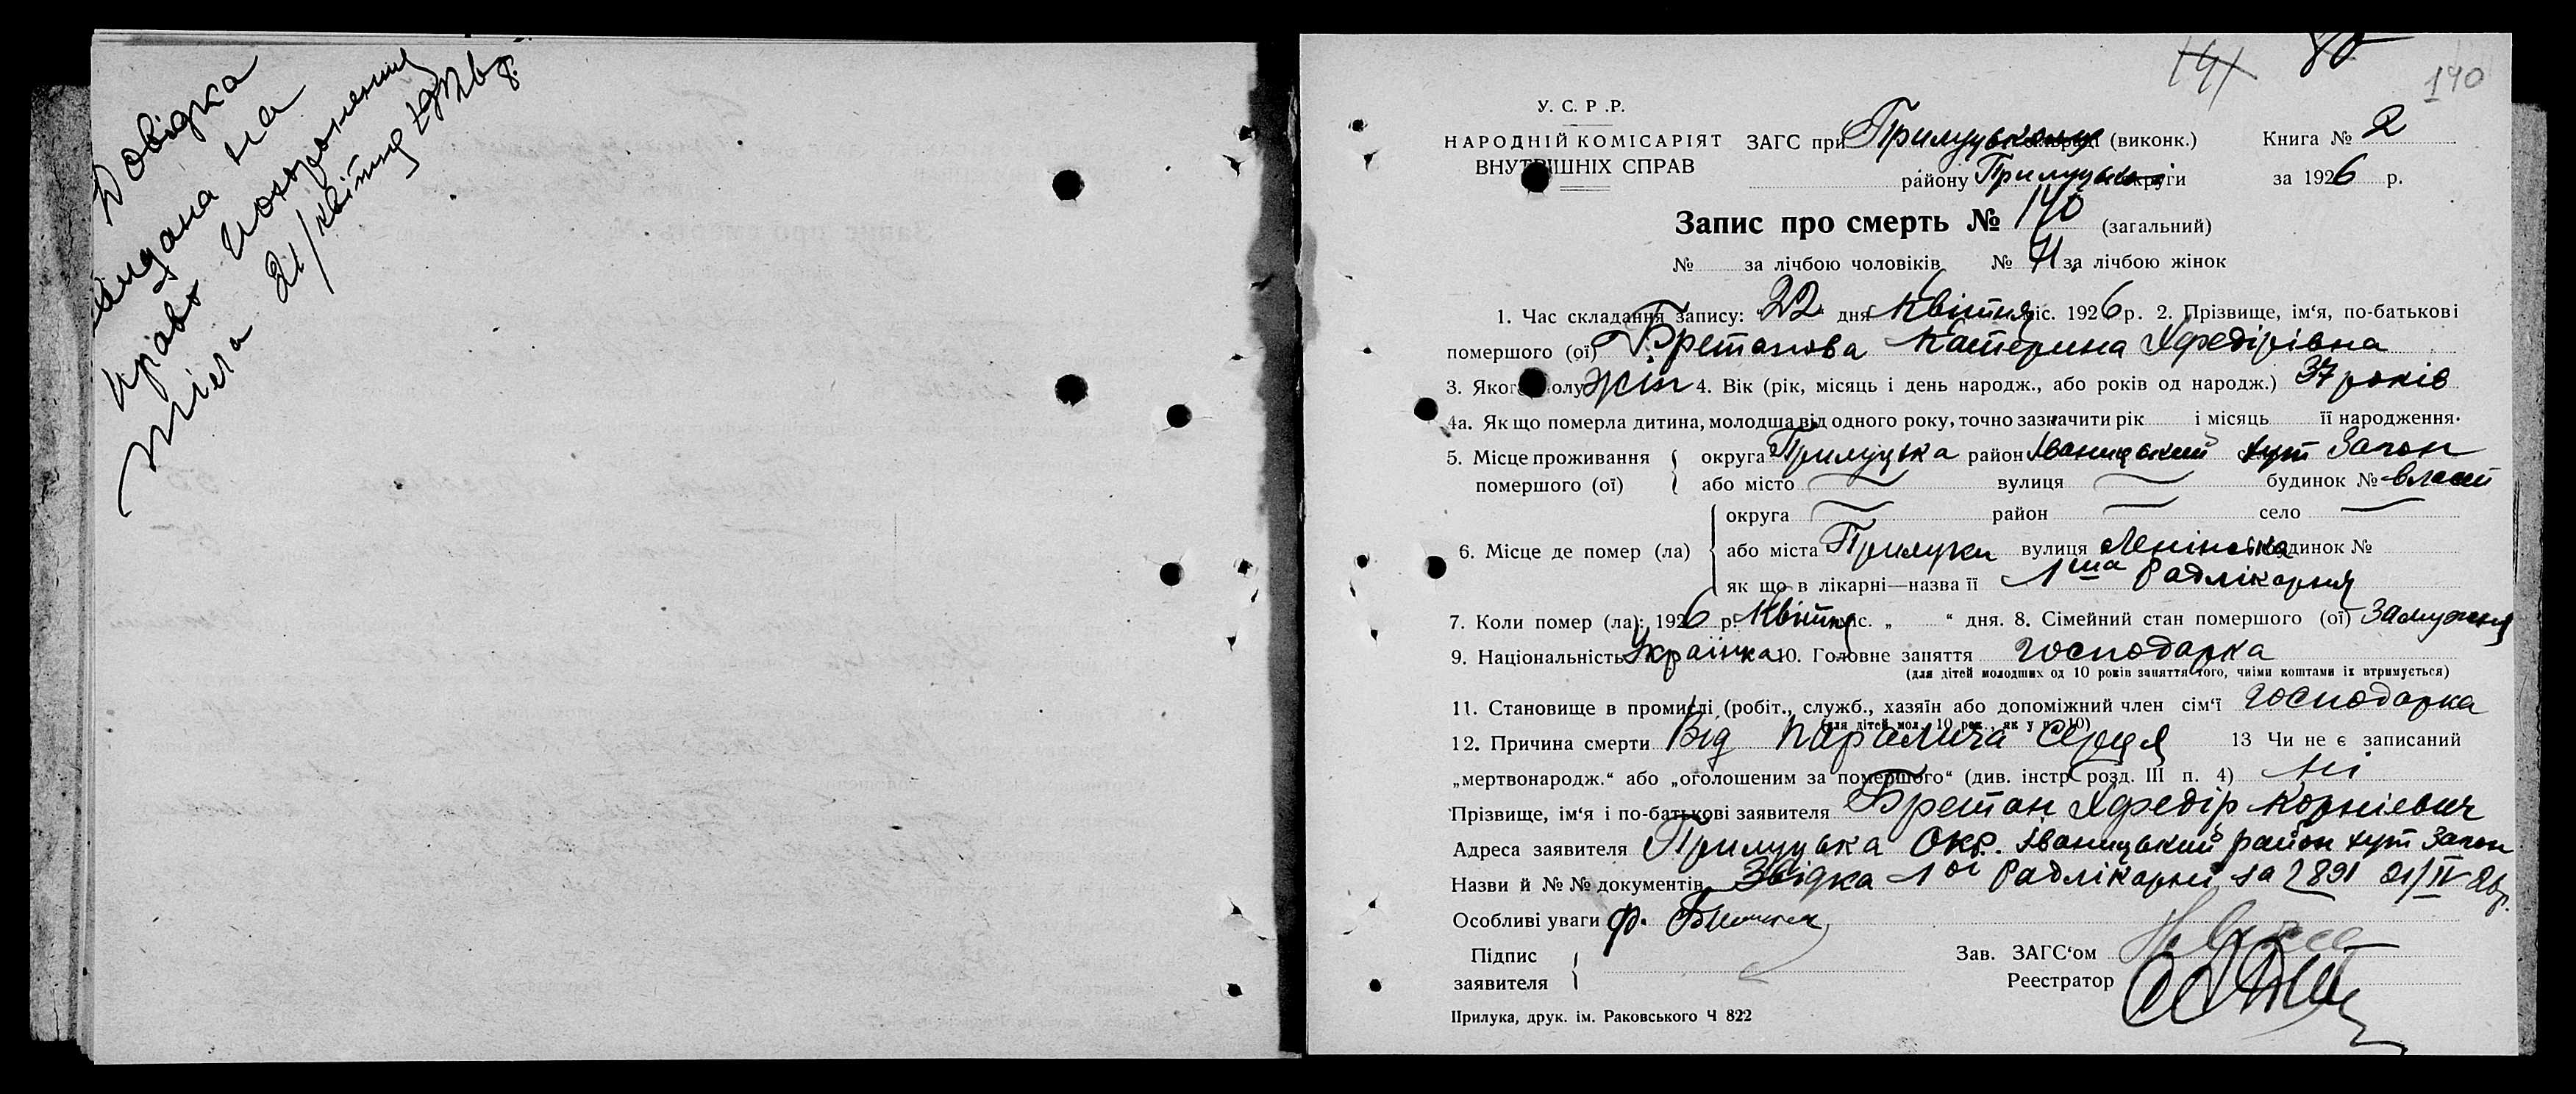 Довідка
видана на
право похоронення
тіла 21/квітня 1926 р.
80
141
140
У. С. Р .Р.
НАРОДНІЙ КОМІСАРІЯТ
ВНУТРІШНІХ СПРАВ
ЗАГС при Прилуцькому (виконк.)
району Прилуцької округи
Книга № 2
за 1926 р.
Запис про смерть № 140 (загальний)
№ за лічбою чоловіків № 71 за лічбою жінок
1. Час складання запису: 22 дня Квітня міс. 1926 р. 2. Прізвище, ім‘я, по-батькові
помершого (ої) Бретанова Катерина Хфедірівна
3. Якого полу жін 4. Вік (рік, місяць і день народж., або років од народж.) 37 років
4а. Як що померла дитина, молодша від одного року, точно зазначити рік і місяць її народження.
5. Місце проживання помершого (ої) { округа Прилуцька район Іваницький хут Загон
або місто вулиця будинок № власн
6. Місце де помер (ла) { округа район село
або міста Прилуки вулиця Ленінська будинок №
як що в лікарні—назва її 1ша Радлікарня
7. Коли помер (ла): 1926 р. Квітня міс. „ “ дня. 8. Сімейний стан помершого (ої) Замужня
9. Національність Українка 10. Головне заняття господарка
(для дітей молодших од 10 років заняття того, чиїми коштами їх втримується)
11. Становище в промислі (робіт., служб., хазяїн або допоміжний член сім‘ї господарка
(для дітей мол. 10 рок., як у п. 10)
12. Причина смерти Від паралича серця 13 Чи не є записаний
„мертвонародж.“ або „оголошеним за помершого“ (див. інстр. розд. III п. 4) ні
Прізвище, ім‘я і по-батькові заявителя Бретан Хфедір Корнієвич
Адреса заявителя Прилуцька Окр. Іваницький район хут Загон
Назви й № № документів Звідка 1ої Радлікарні за 2891 21/IV 26 р.
Особливі уваги Ф.
Підпис
заявителя {
Зав. ЗАГС‘ом
Реестратор
Прилука, друк. ім. Раковського Ч 822